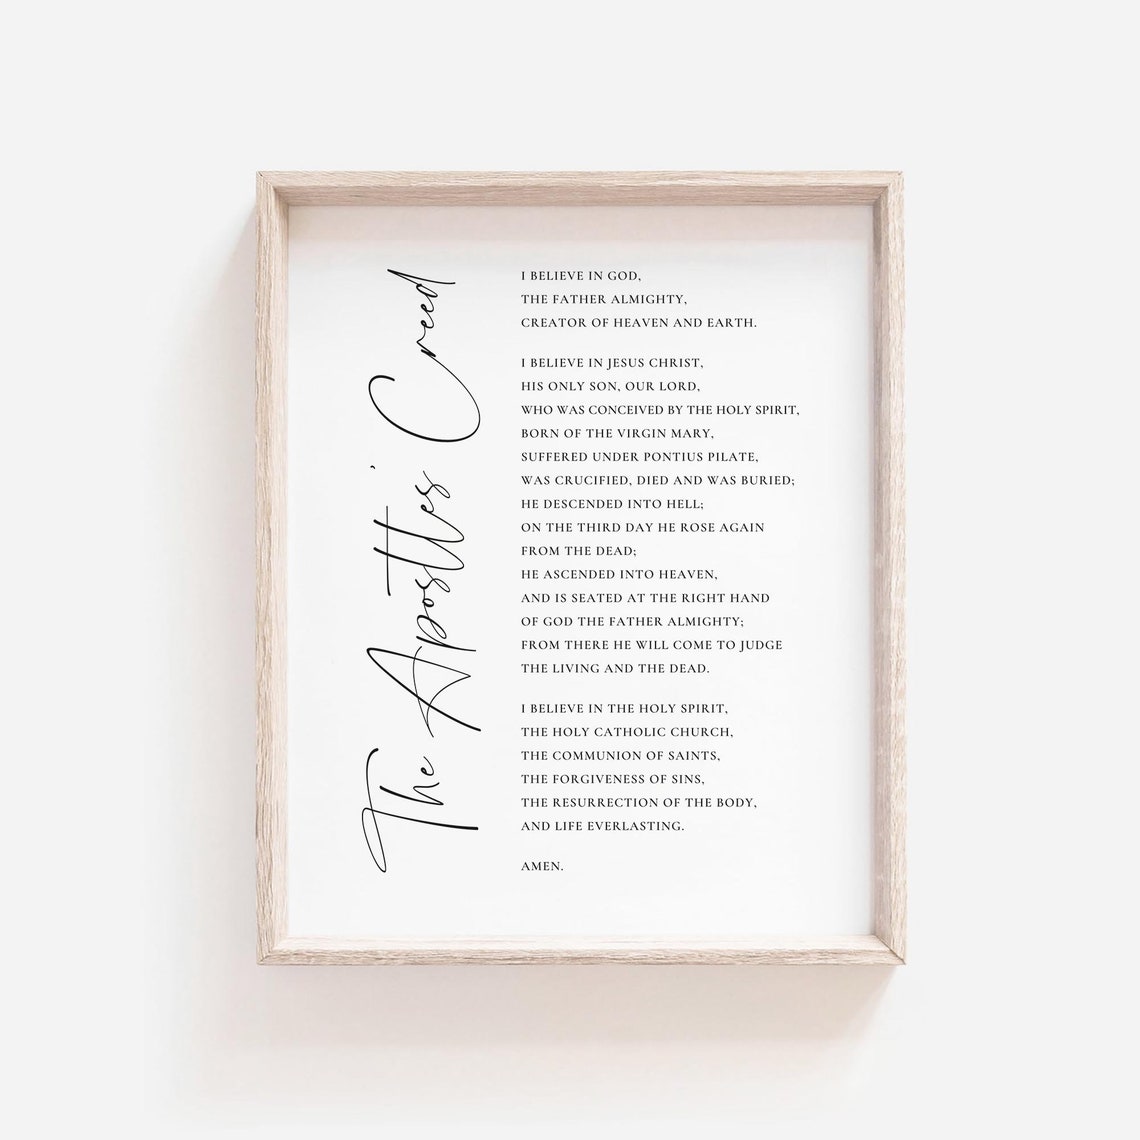 The Apostles' Creed
I BELIEVE IN GOD,
THE FATHER ALMIGHTY,
CREATOR OF HEAVEN AND EARTH.
I BELIEVE IN JESUS CHRIST,
HIS ONLY SON, OUR LORD,
WHO WAS CONCEIVED BY THE HOLY SPIRIT,
BORN OF THE VIRGIN MARY,
SUFFERED UNDER PONTIUS PILATE,
WAS CRUCIFIED, DIED AND WAS BURIED;
HE DESCENDED INTO HELL;
ON THE THIRD DAY HE ROSE AGAIN
FROM THE DEAD;
HE ASCENDED INTO HEAVEN,
AND IS SEATED AT THE RIGHT HAND
OF GOD THE FATHER ALMIGHTY;
FROM THERE HE WILL COME TO JUDGE
THE LIVING AND THE DEAD.
I BELIEVE IN THE HOLY SPIRIT,
THE HOLY CATHOLIC CHURCH,
THE COMMUNION OF SAINTS,
THE FORGIVENESS OF SINS,
THE RESURRECTION OF THE BODY,
AND LIFE EVERLASTING.
AMEN.